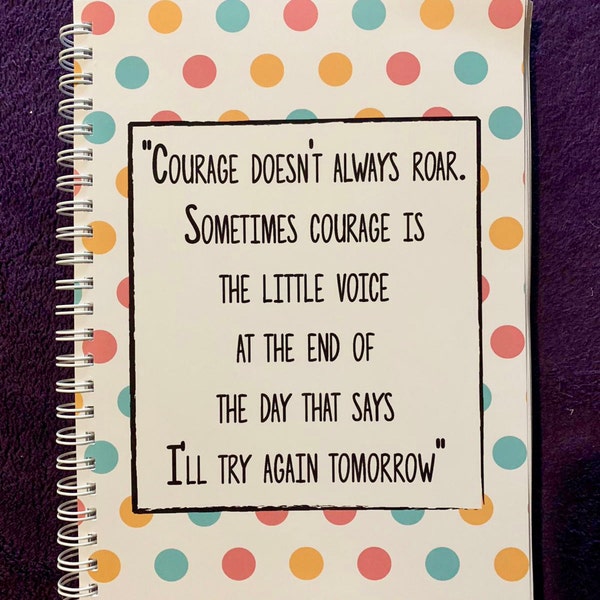 "Courage doesn't always roar.
Sometimes courage is
the little voice
at the end of
the day that says
I'll try again tomorrow"